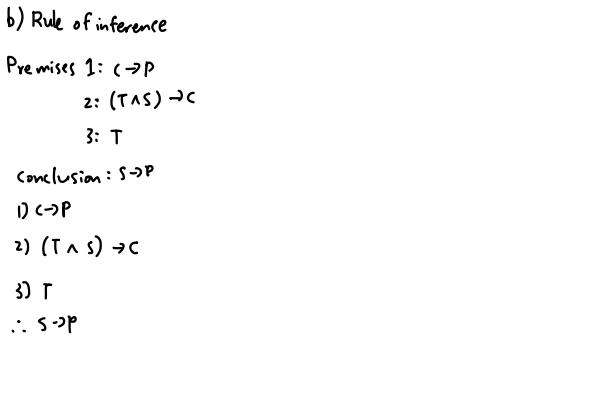 b) Rule of inference
Premises 1: C→P
2: (T∧S)→C
3: T
conclusion: S→P
1) C→P
2) (T∧S)→C
3) T
∴ S→P